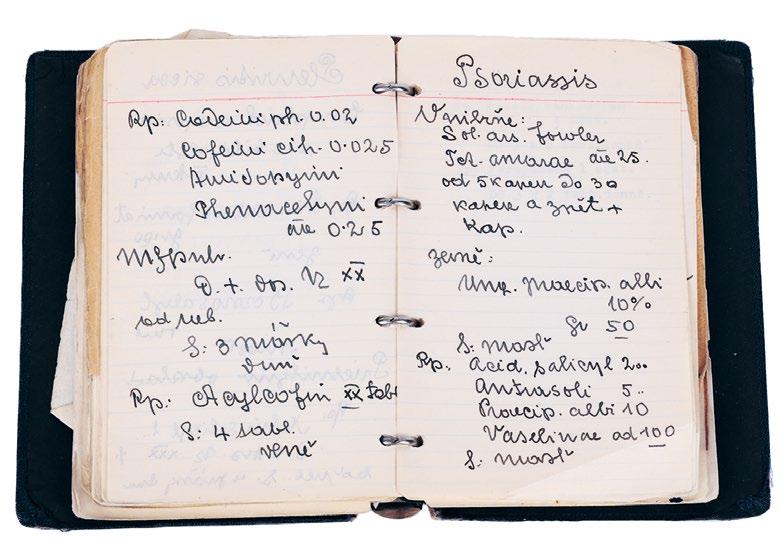 Rp: Codeini ph. 0.02
Cofeini cih. 0.025
Amidopyrini
Phenacetyni
āe 0.25
Mfpulv.
D. t. dos. № XX
od neb.
S: 3 prášky
denně
Rp: Acylcofin XX tabl
S: 4 tabl.
denně
Psoriassis
Vnitřně:
Sol. ars. Fowler
Tct. amarae āe 25.
od 5 kapek do 30
kapek a zpět +
kap.
zevně:
Ung. praecip. albi
10%
Gr 50
S: mast
Rp: Acid. salicyl 2..
Antrasoli 5..
Praecip. albi 10
Vaselinae ad 100
S: mast